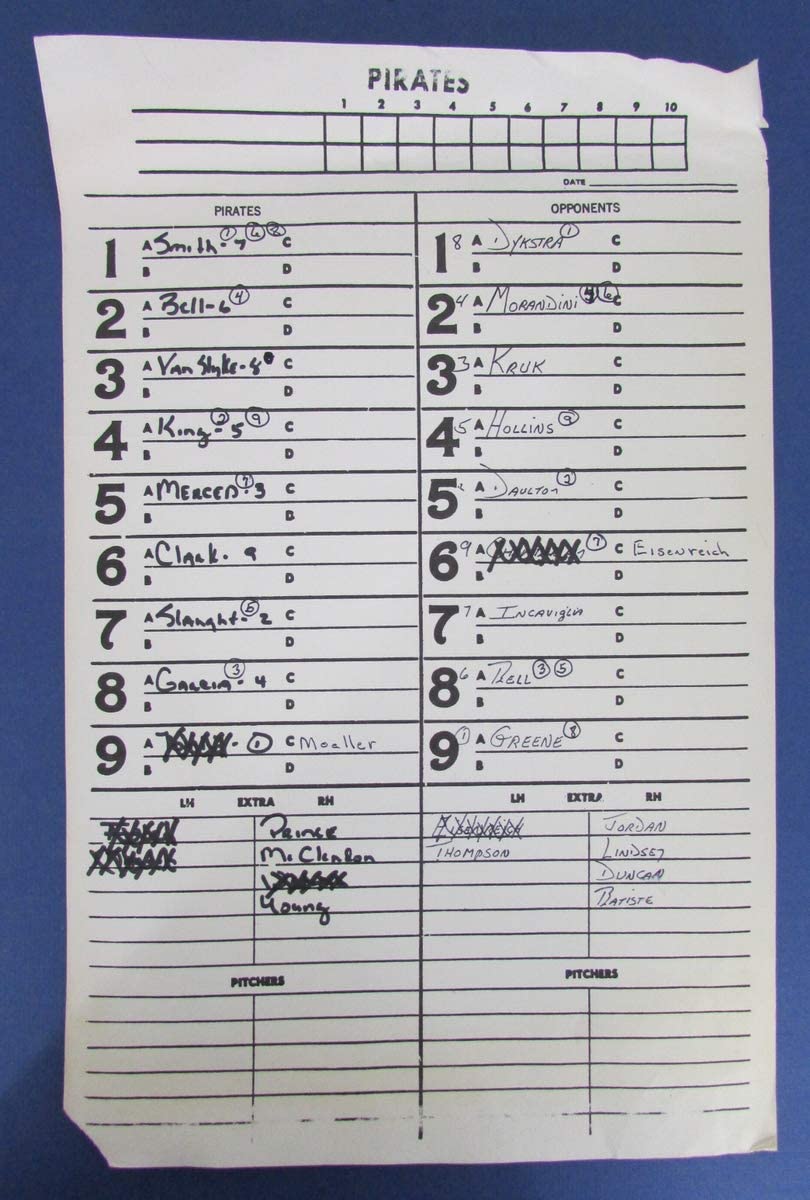 PIRATES
1 2 3 4 5 6 7 8 9 10
DATE
PIRATES
1 A Smith - 7 ① ⑥ ⑧ C
B D
2 A Bell - 6 ④ C
B D
3 A Van Slyke - 8 C
B D
4 A King - 5 ② ⑨ C
B D
5 A MERCED - 3 ⑦ C
B D
6 A Clark - 9 C
B D
7 A Slaught - 2 ⑤ C
B D
8 A GARCIA - 4 ③ C
B D
9 A - ① C Moeller
B D
LH EXTRA RH
Prince
McClendon
Young
PITCHERS
OPPONENTS
1 8 A DYKSTRA ① C
B D
2 4 A MORANDINI ⑥ C
B D
3 3 A KRUK C
B D
4 5 A HOLLINS ⑨ C
B D
5 A DAULTON ② C
B D
6 9 A ⑦ C Eisenreich
B D
7 7 A INCAVIGLIA C
B D
8 6 A BELL ③ ⑤ C
B D
9 ① A GREENE ⑧ C
B D
LH EXTRA RH
EISENREICH JORDAN
THOMPSON LINDSEY
DUNCAN
BATISTE
PITCHERS